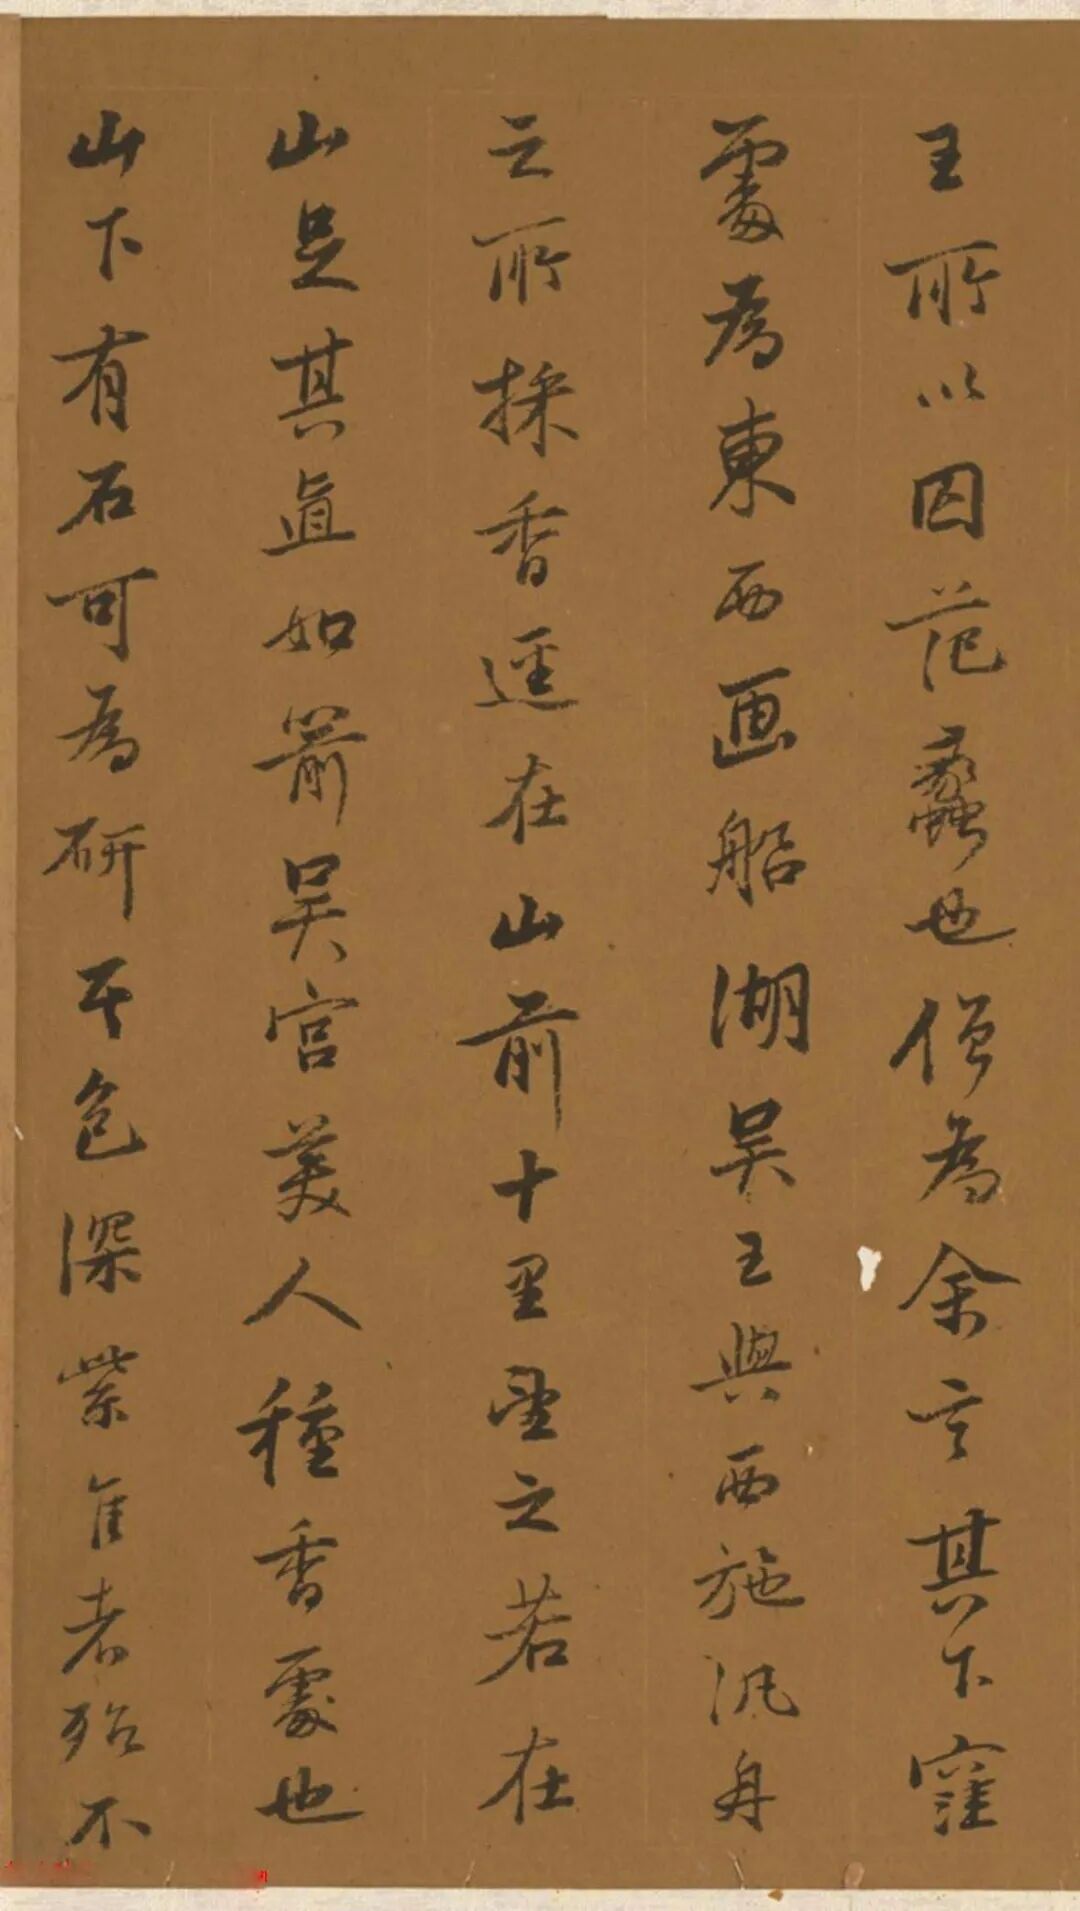 王所以囚范蠡也僧為余言其下窪
處為東西画船湖吳王與西施汎舟
之所採香逕在山前十里望之若在
山足其直如箭吳宮美人種香處也
山下有石可為研其色深紫佳者殆不